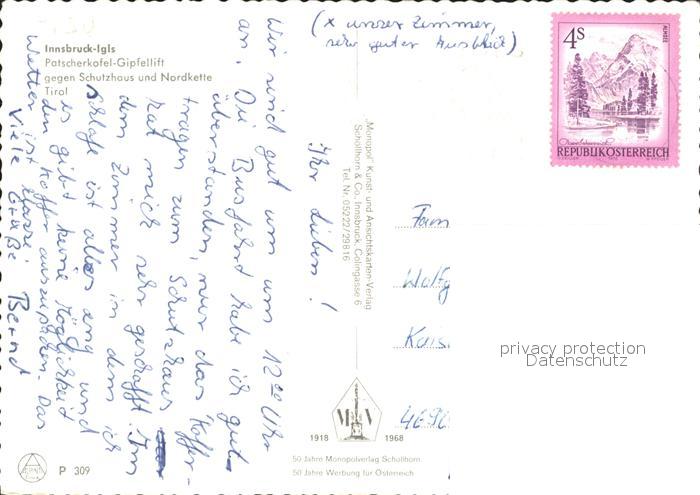 (x unser Zimmer,
sehr guter Ausblick)
Innsbruck-Igls
Patscherkofel-Gipfellift
gegen Schutzhaus und Nordkette
Tirol
Ihr Lieben!
Wir sind gut um um 12⁰⁰ Uhr
an. Die Busfahrt habe ich gut
überstanden, nur das Koffer-
tragen zum Schutzhaus
hat mich sehr geschafft. Im
dem Zimmer in dem ich
Schlafe ist alles eng und
es gibt keine Möglichkeit
den Koffer auszupacken. Das
Wetter ist klasse.
Viele Grüße Bernd
"Monopol" Kunst- und Ansichtskarten-Verlag
Schöllhorn & Co, Innsbruck, Colingasse 6
Tel. Nr. 05222/29816
4S
ALMSEE
Oberösterreich
REPUBLIK ÖSTERREICH
Fam
Wolfg
Kais
4690
privacy protection
Datenschutz
M V
1918 1968
50 Jahre Monopolverlag Schöllhorn
50 Jahre Werbung für Österreich
P 309